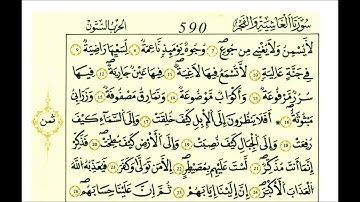 سُورَتَا الْغَاشِيَةِ وَالْفَجْرِ 590 الحزب الستون
لَّا يُسْمِنُ وَلَا يُغْنِے مِن جُوعٍ 7 وُجُوهٌ يَوْمَئِذٍ نَّاعِمَةٌ 8 لِّسَعْيِهَا رَاضِيَةٌ 9
فِے جَنَّةٍ عَالِيَةٍ 10 لَّا تُسْمَعُ فِيهَا لَاغِيَةٌ 11 فِيهَا عَيْنٌ جَارِيَةٌ 12 فِيهَا
سُرُرٌ مَّرْفُوعَةٌ 13 وَأَكْوَابٌ مَّوْضُوعَةٌ 14 وَنَمَارِقُ مَصْفُوفَةٌ 15 وَزَرَابِيُّ
مَبْثُوثَةٌ 16 أَفَلَا يَنظُرُونَ إِلَى الْإِبِلِ كَيْفَ خُلِقَتْ 17 وَإِلَى السَّمَاءِ كَيْفَ
رُفِعَتْ 18 وَإِلَى الْجِبَالِ كَيْفَ نُصِبَتْ 19 وَإِلَى الْأَرْضِ كَيْفَ سُطِحَتْ 20 فَذَكِّرْ
ثمن
إِنَّمَا أَنتَ مُذَكِّرٌ 21 لَّسْتَ عَلَيْهِم بِمُصَيْطِرٍ 22 إِلَّا مَن تَوَلَّىٰ وَكَفَرَ 23 فَيُعَذِّبُهُ اللَّهُ
الْعَذَابَ الْأَكْبَرَ 24 إِنَّ إِلَيْنَا إِيَابَهُمْ 25 ثُمَّ إِنَّ عَلَيْنَا حِسَابَهُم 26